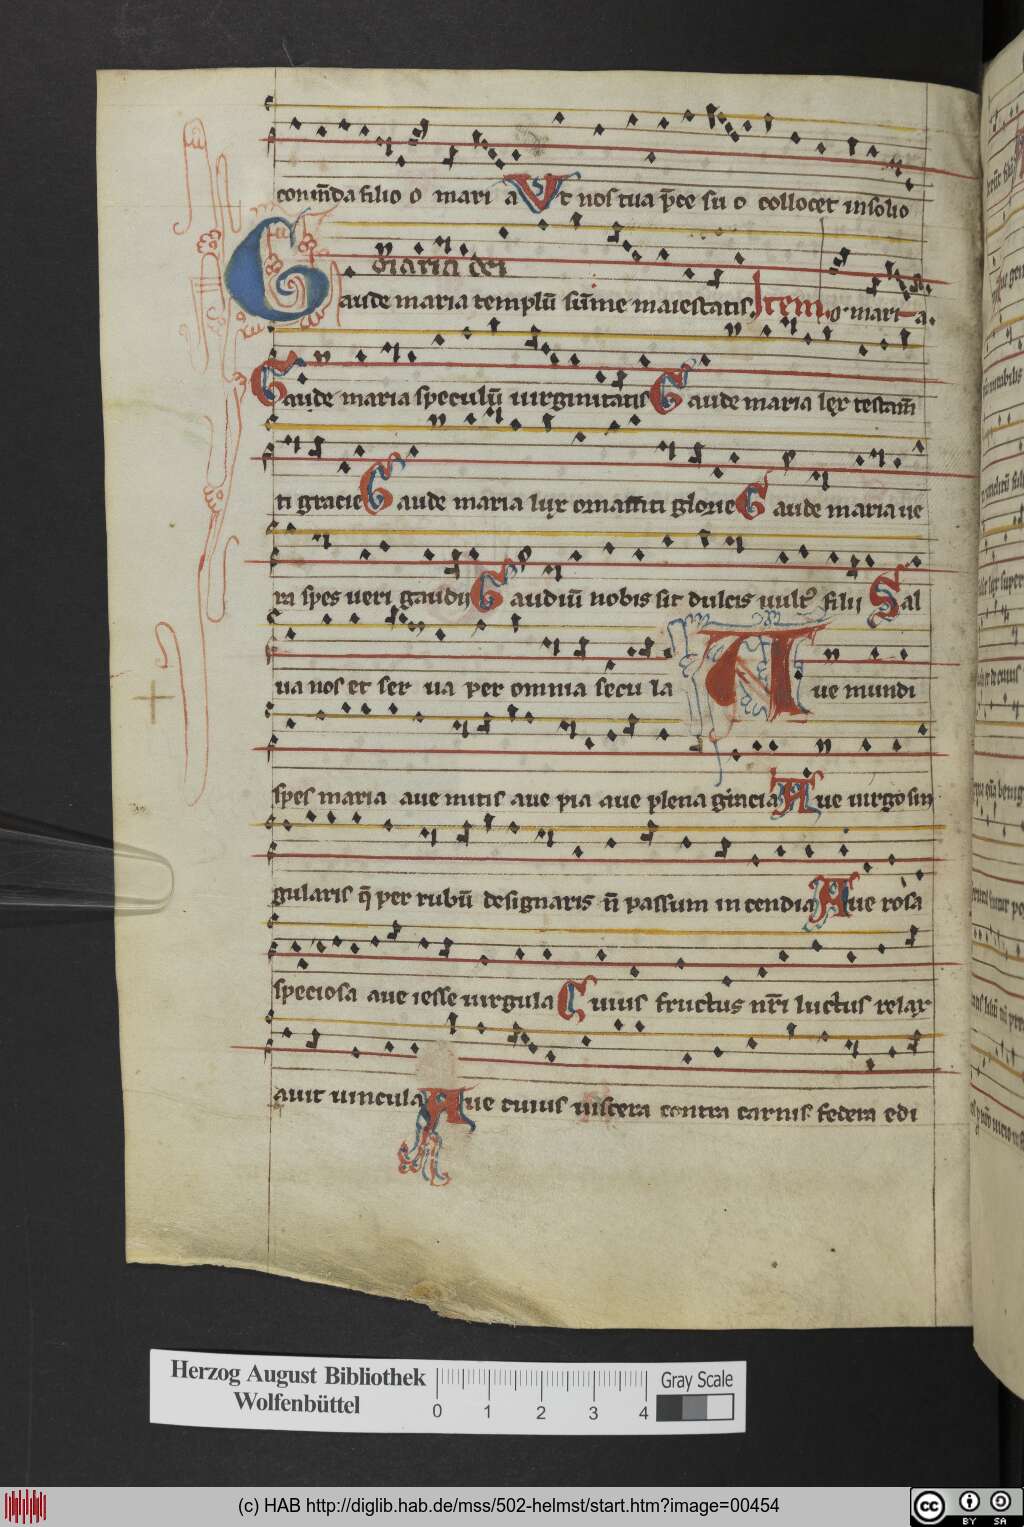 com̄da filio o mari a Vt nos tua p̄ce su o collocet in solio
Maria dei
Gaude maria templū sūme maiestatis. Item. o mari a.
Gaude maria speculū uirginitatis Gaude maria lex testam̄
ti gracie Gaude maria lux ornam̄ti glorie Gaude maria ue
ra spes ueri gaudij Gaudiū nobis sit dulcis uult⁹ filij Sal
ua nos et ser ua per omnia secu la Aue mundi
spes maria aue mitis aue pia aue plena gracia Aue uirgo sin
gularis q̄ per rubū designaris n̄ passum incendia Aue rosa
speciosa aue iesse uirgula Cuius fructus nr̄i luctus relax
auit uincula Aue cuius uiscera contra carnis federa edi
Herzog August Bibliothek
Wolfenbüttel
0 1 2 3 4
Gray Scale
(c) HAB http://diglib.hab.de/mss/502-helmst/start.htm?image=00454
cc BY SA